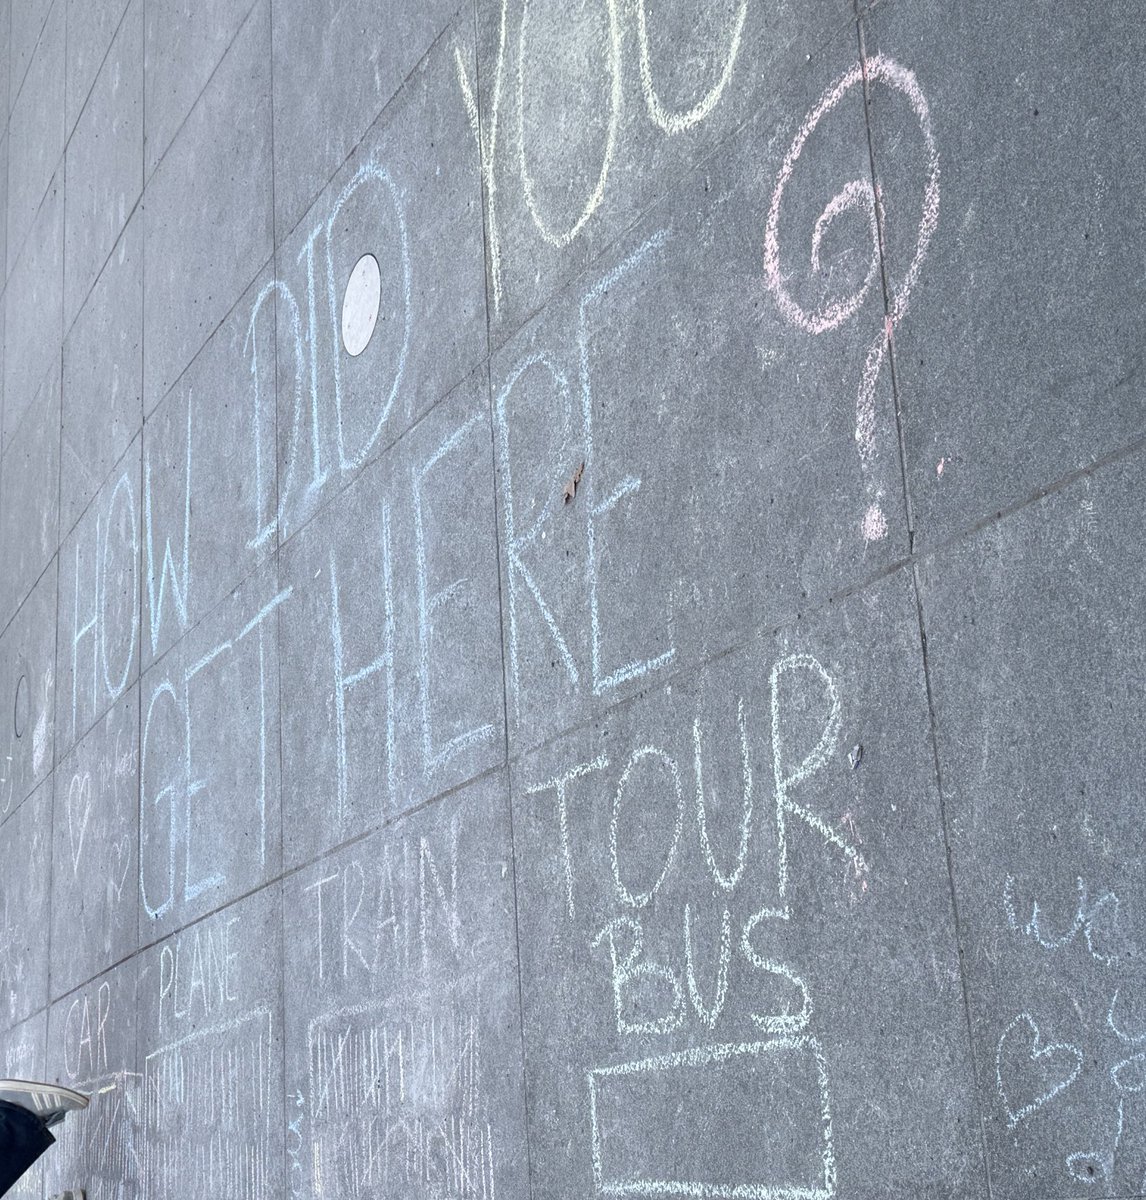 HOW DID YOU
GET HERE?
CAR PLANE TRAIN TOUR
BUS